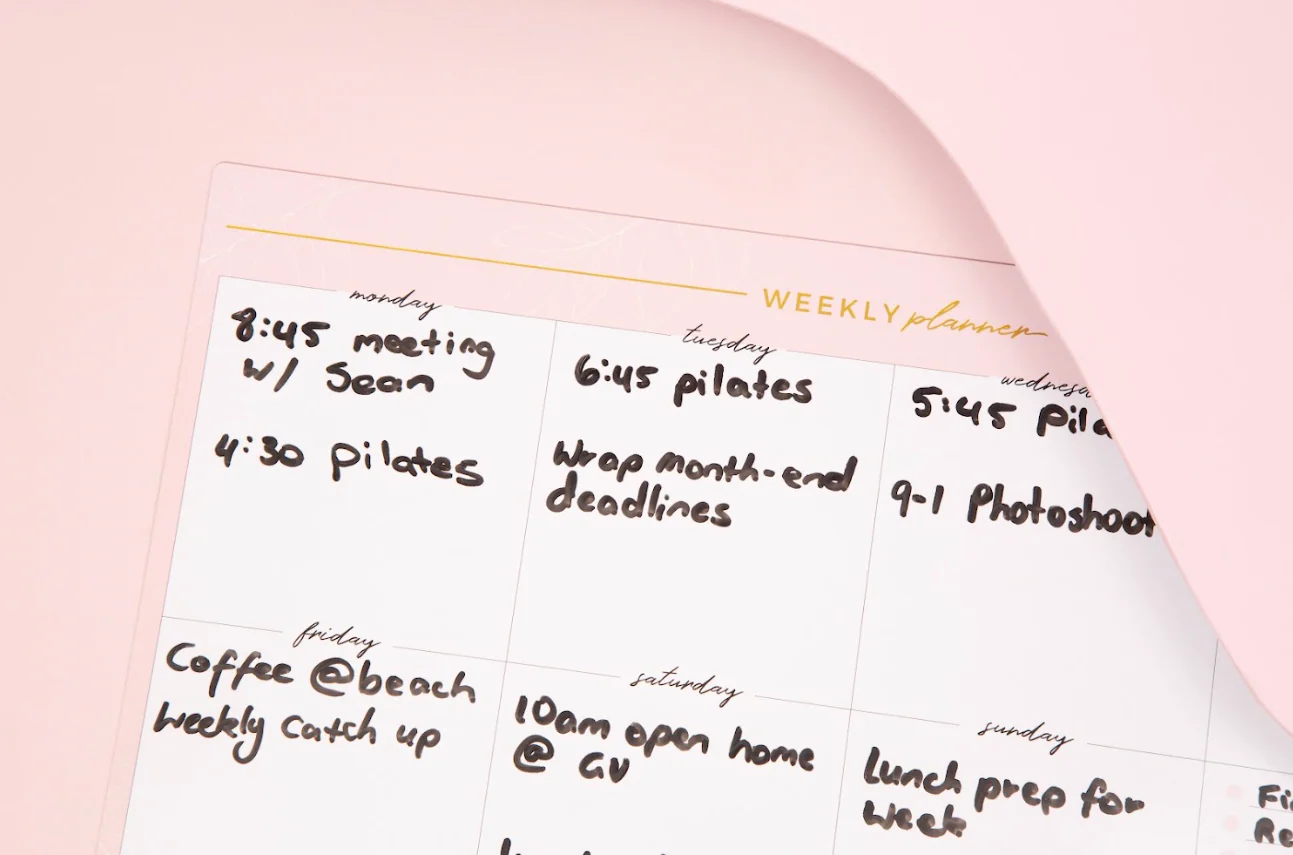 WEEKLY planner
monday
8:45 meeting
w/ Sean
4:30 pilates
tuesday
6:45 pilates
Wrap month-end
deadlines
5:45
9-1 Photoshoot
friday
Coffee @beach
Weekly Catch up
saturday
10am open home
@ GV
sunday
Lunch prep for
week